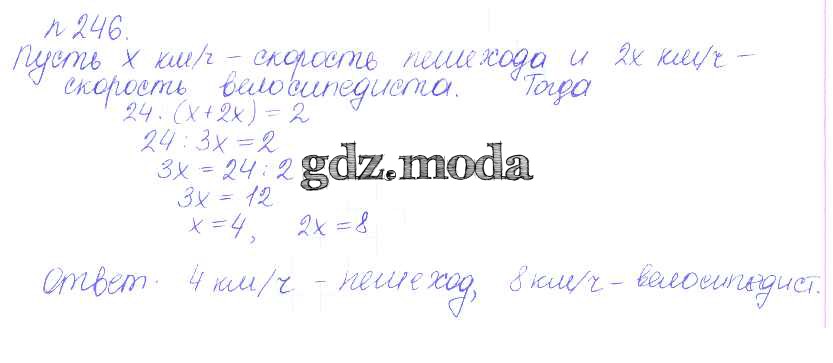 n 246.
Пусть х км/ч – скорость пешехода и 2х км/ч –
скорость велосипедиста. Тогда
24 : (х + 2х) = 2
24 : 3х = 2
3х = 24 : 2
gdz.moda
3х = 12
х = 4, 2х = 8
Ответ. 4 км/ч – пешеход, 8 км/ч – велосипедист.